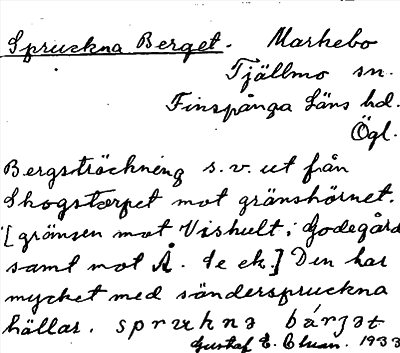 Spruckna Berget. Markebo
Tjällmo sn.
Finspånga Läns hd.
Ögl.
Bergsträckning s.v. ut från
Skogstorpet mot gränshörnet.
[gränsen mot Vishult i Godegård
samt mot Å. Se ek.] Den har
mycket med sönderspruckna
hällar. spruknə bárjət
Gustaf E. Cluan. 1933